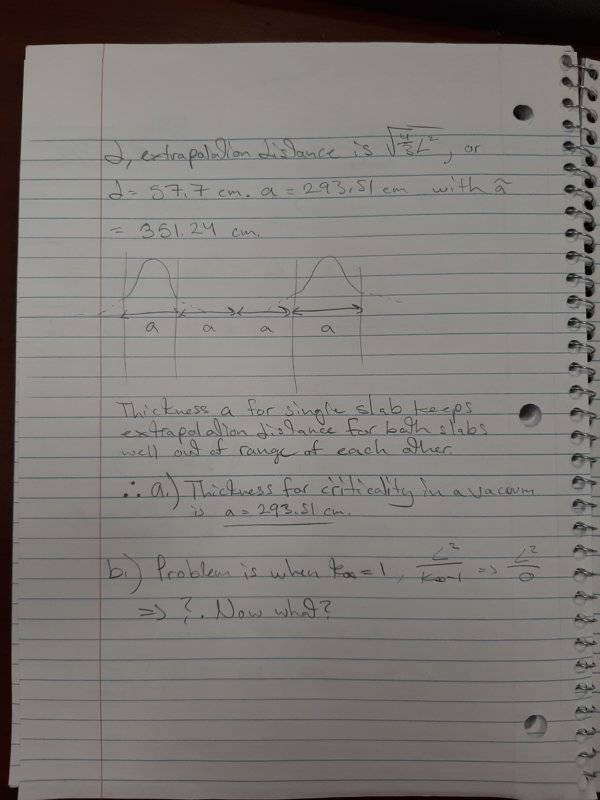 d, extrapolation distance is √(4/3 L²), or
d = 57.7 cm. a = 293.51 cm with ã
= 351.24 cm.
a a a a
Thickness a for single slab keeps
extrapolation distance for both slabs
well out of range of each other.
∴ a.) Thickness for criticality in a vacuum
is a = 293.51 cm.
b.) Problem is when k∞ = 1, L²/k∞-1 => L²/0
=> ?. Now what?